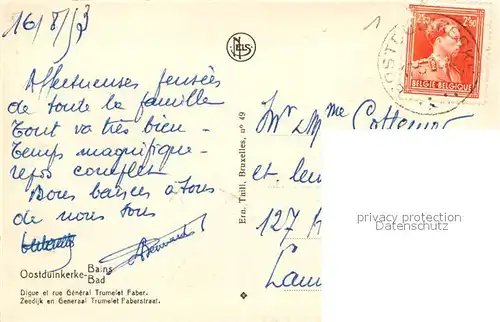 16/8/53
1
Affectueuses pensées
de toute la famille
Tout va très bien -
Temps magnifique -
repos complet
Bons baisers à tous
de nous tous
Oostduinkerke-Bains
Bad
Digue et rue Général Trumelet Faber.
Zeedijk en Generaal Trumelet Faberstraat.
NELS
Ern. Thill, Bruxelles, nº 49
2F50 2F50
BELGIE BELGIQUE
Mr & Mme
et
127
privacy protection
Datenschutz